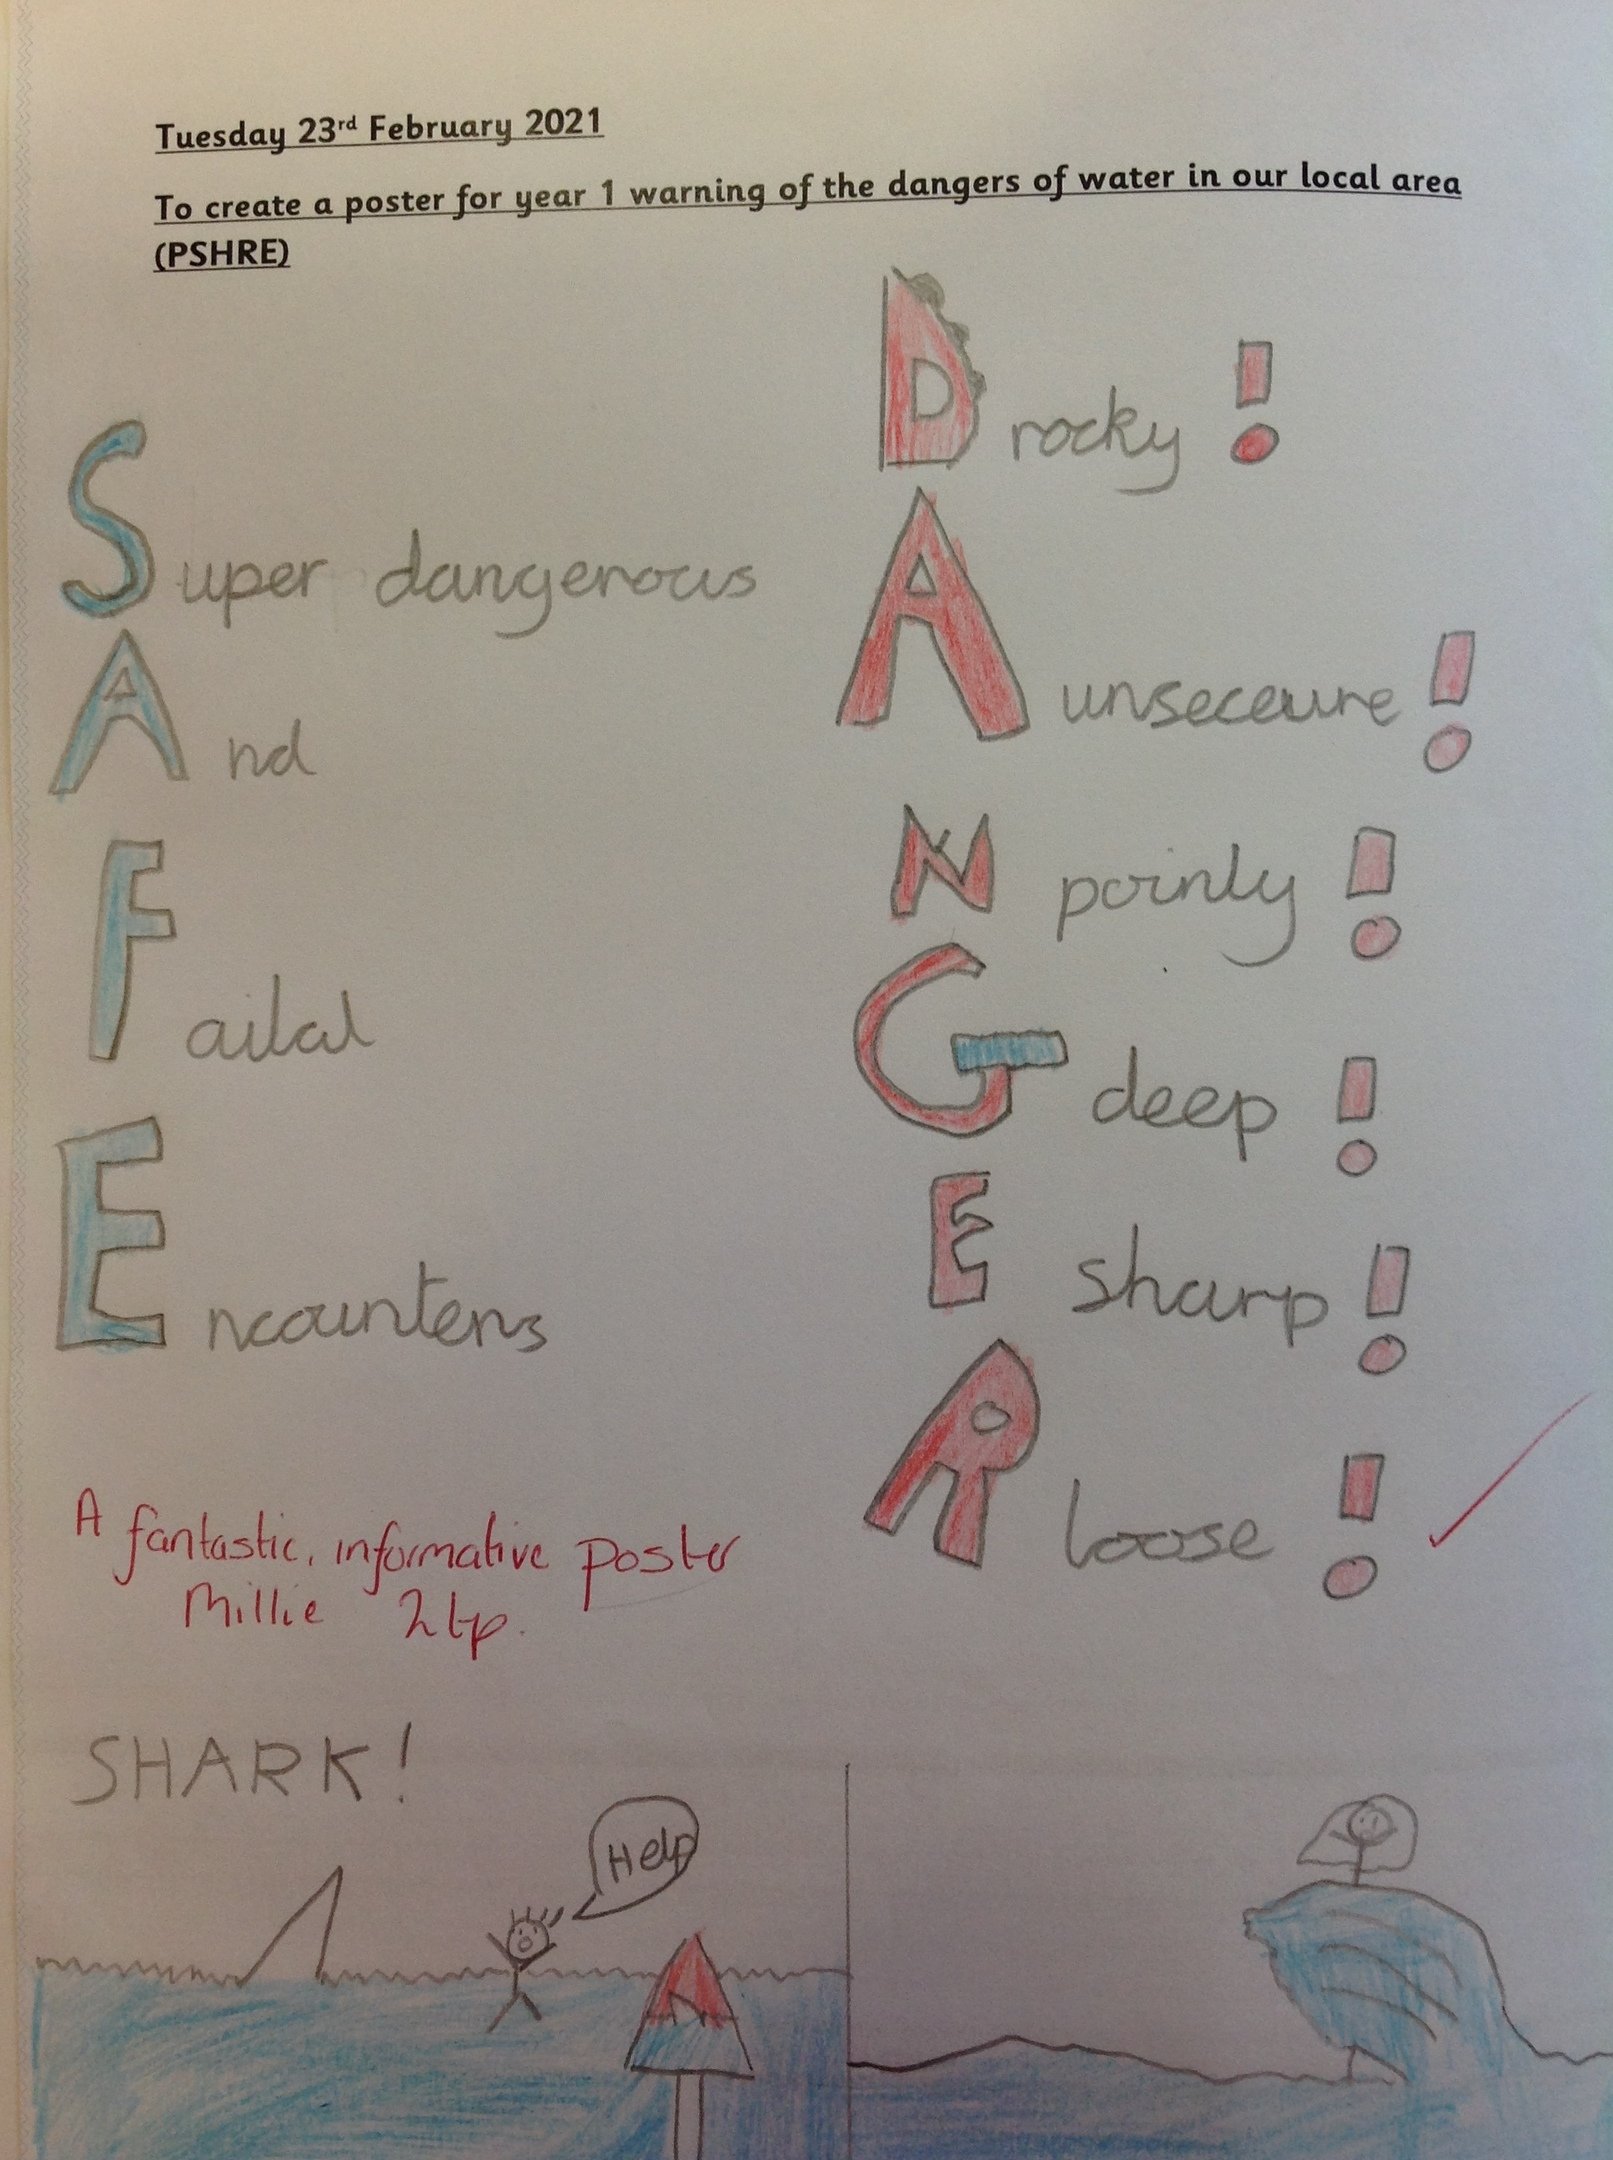 Tuesday 23rd February 2021
To create a poster for year 1 warning of the dangers of water in our local area
(PSHRE)
Super dangerous
And
Failal
Encounters
D rocky!
A unseceure!
N pointy!
G deep!
E sharp!
R loose!
A fantastic, informative poster
Millie 2Hp.
SHARK!
Help